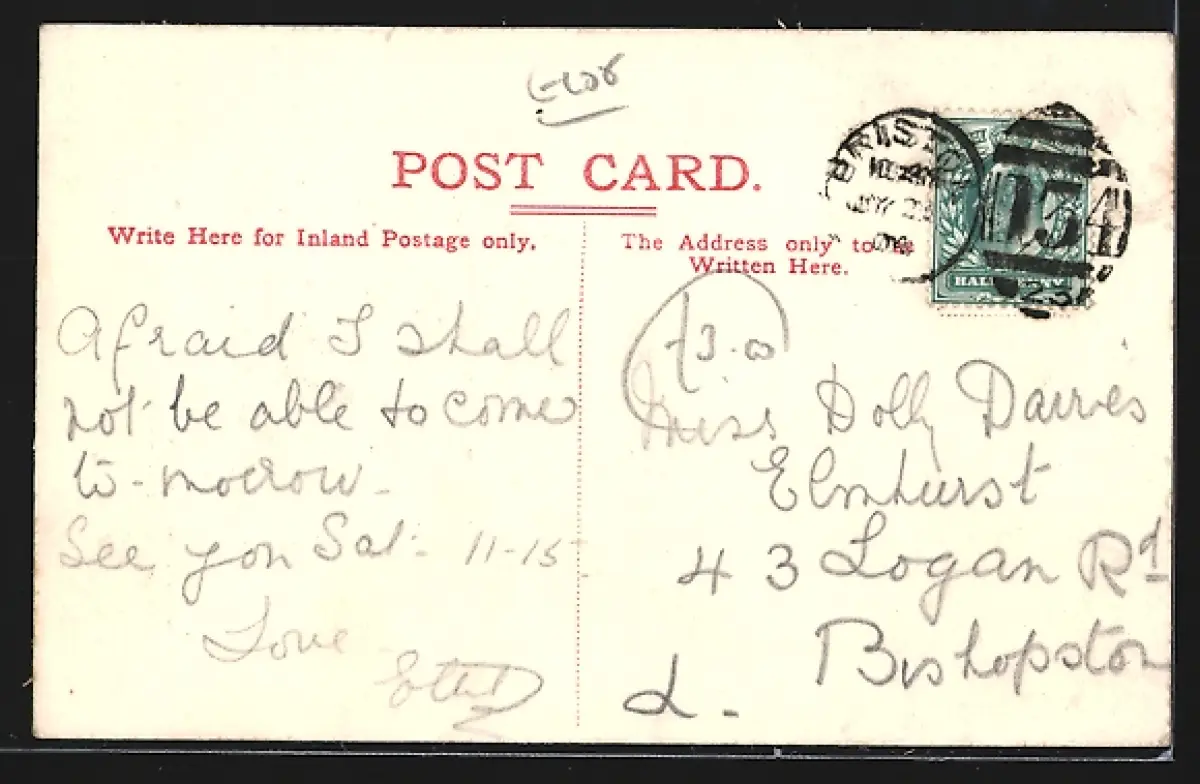 POST CARD.
Write Here for Inland Postage only.
Afraid I shall
not be able to come
to-morrow-
See you Sat- 11-15
Love
The Address only to be
Written Here.
BRISTOL
134
HALFPENNY
13.00
Miss Dolly Davies
Elmhurst
43 Logan Rd
Bishopston